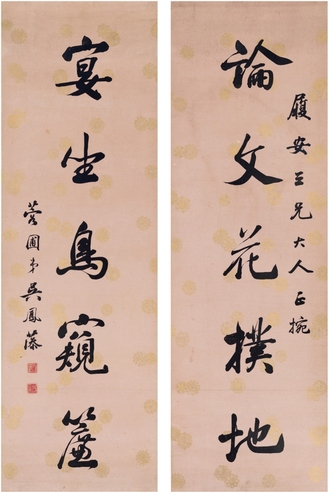 履安三兄大人正捥
論文花撲地
宴坐鳥窺簾
蓉圃弟吳鳳藻